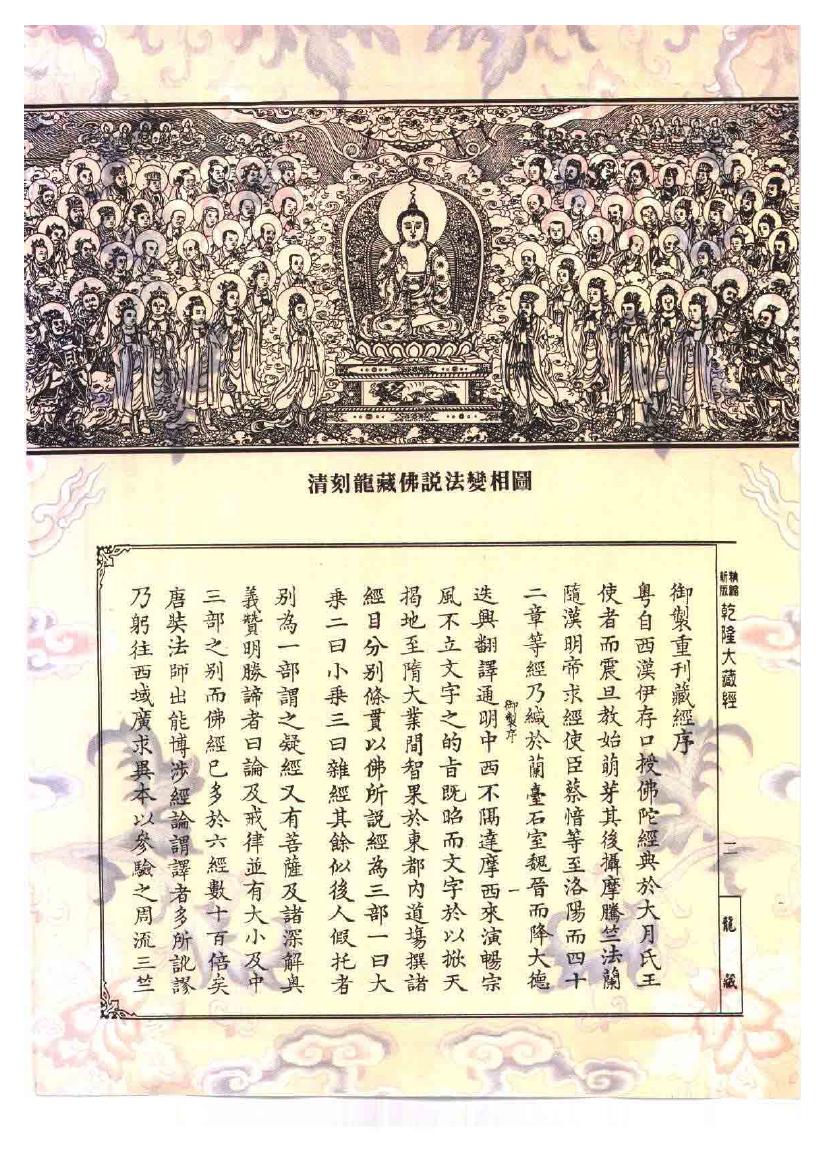 清刻龍藏佛説法變相圖
新版
精縮
乾隆大藏經
二
龍藏
御製重刊藏經序
粤自西漢伊存口授佛陀經典於大月氏王
使者而震旦教始萌芽其後攝摩騰竺法蘭
隨漢明帝求經使臣蔡愔等至洛陽而四十
二章等經乃緘於蘭臺石室魏晉而降大德
御製序
一
迭興翻譯通明中西不隔達摩西來演暢宗
風不立文字之的旨既昭而文字於以掀天
揭地至隋大業間智果於東都內道場撰諸
經目分別條貫以佛所説經為三部一曰大
乘二曰小乘三曰雜經其餘似後人假托者
別為一部謂之疑經又有菩薩及諸深解奥
義贊明勝諦者曰論及戒律並有大小及中
三部之別而佛經已多於六經數十百倍矣
唐奘法師出能博涉經論謂譯者多所訛謬
乃躬往西域廣求異本以參驗之周流三竺